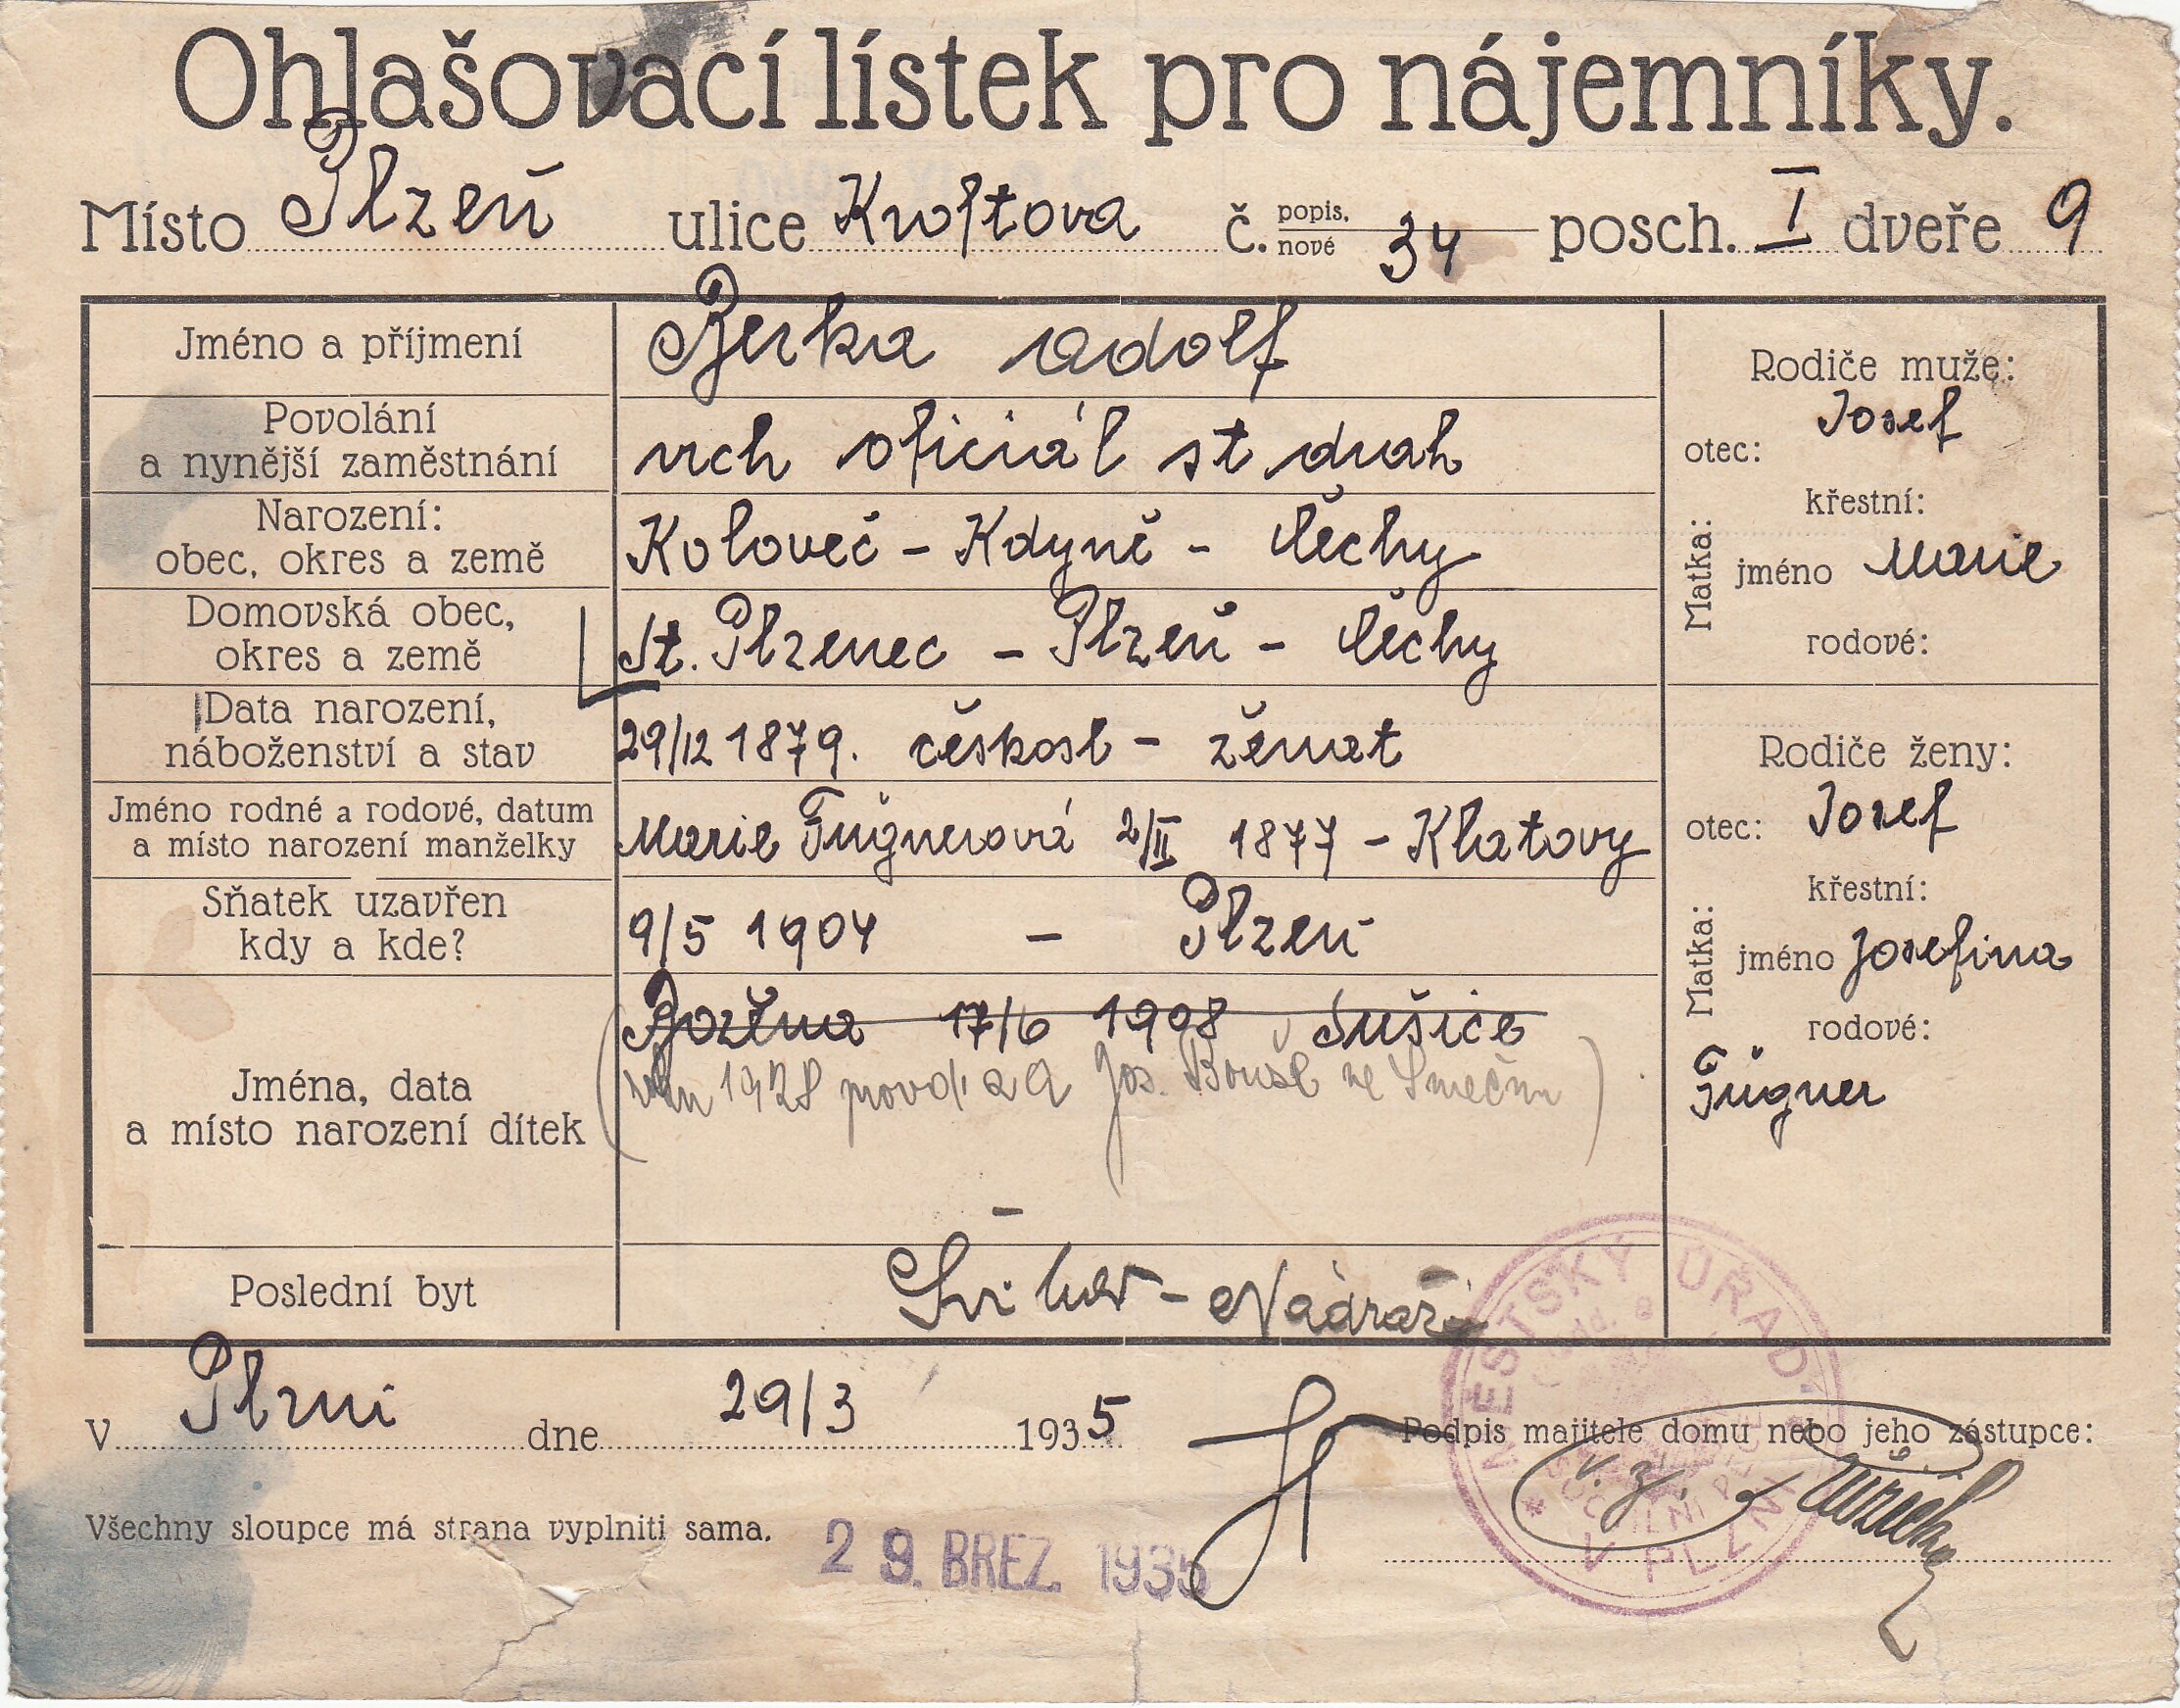 Ohlašovací lístek pro nájemníky.
Místo Plzeň ulice Kroftova č. popis. nové 34 posch. I dveře 9
Jméno a příjmení Berka Adolf
Povolání a nynější zaměstnání vrch oficiál st drah
Narození: obec, okres a země Koloveč - Kdyně - Čechy
Domovská obec, okres a země St. Plzenec - Plzeň - Čechy
Data narození, náboženství a stav 29/12 1879. českosl - ženat
Jméno rodné a rodové, datum a místo narození manželky Marie Fügnerová 2/II 1877 - Klatovy
Sňatek uzavřen kdy a kde? 9/5 1904 - Plzeň
Jména, data a místo narození dítek Božena 17/6 1908 Sušice
1928 provd. za Jos.
Poslední byt Švihov - Nádraží
Rodiče muže:
otec: Josef
Matka: křestní:
jméno Marie
rodové:
Rodiče ženy:
otec: Josef
Matka: křestní:
jméno Josefina
rodové:
Fügner
V Plzni dne 29/3 1935
Podpis majitele domu nebo jeho zástupce:
v. z.
Všechny sloupce má strana vyplniti sama.
29. BŘEZ. 1935
MĚSTSKÝ ÚŘAD V PLZNI